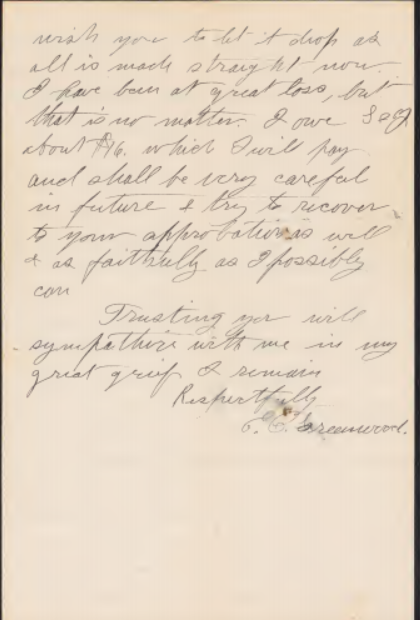 wish you to let it drop as
all is made straight now.
I have been at great loss, but
that is no matter. I owe
about $16. which I will pay
and shall be very careful
in future & try to recover
to your approbation as well
& as faithfully as I possibly
can
Trusting you will
sympathize with me in my
great grief I remain
Respectfully
E. C. Greenwood.